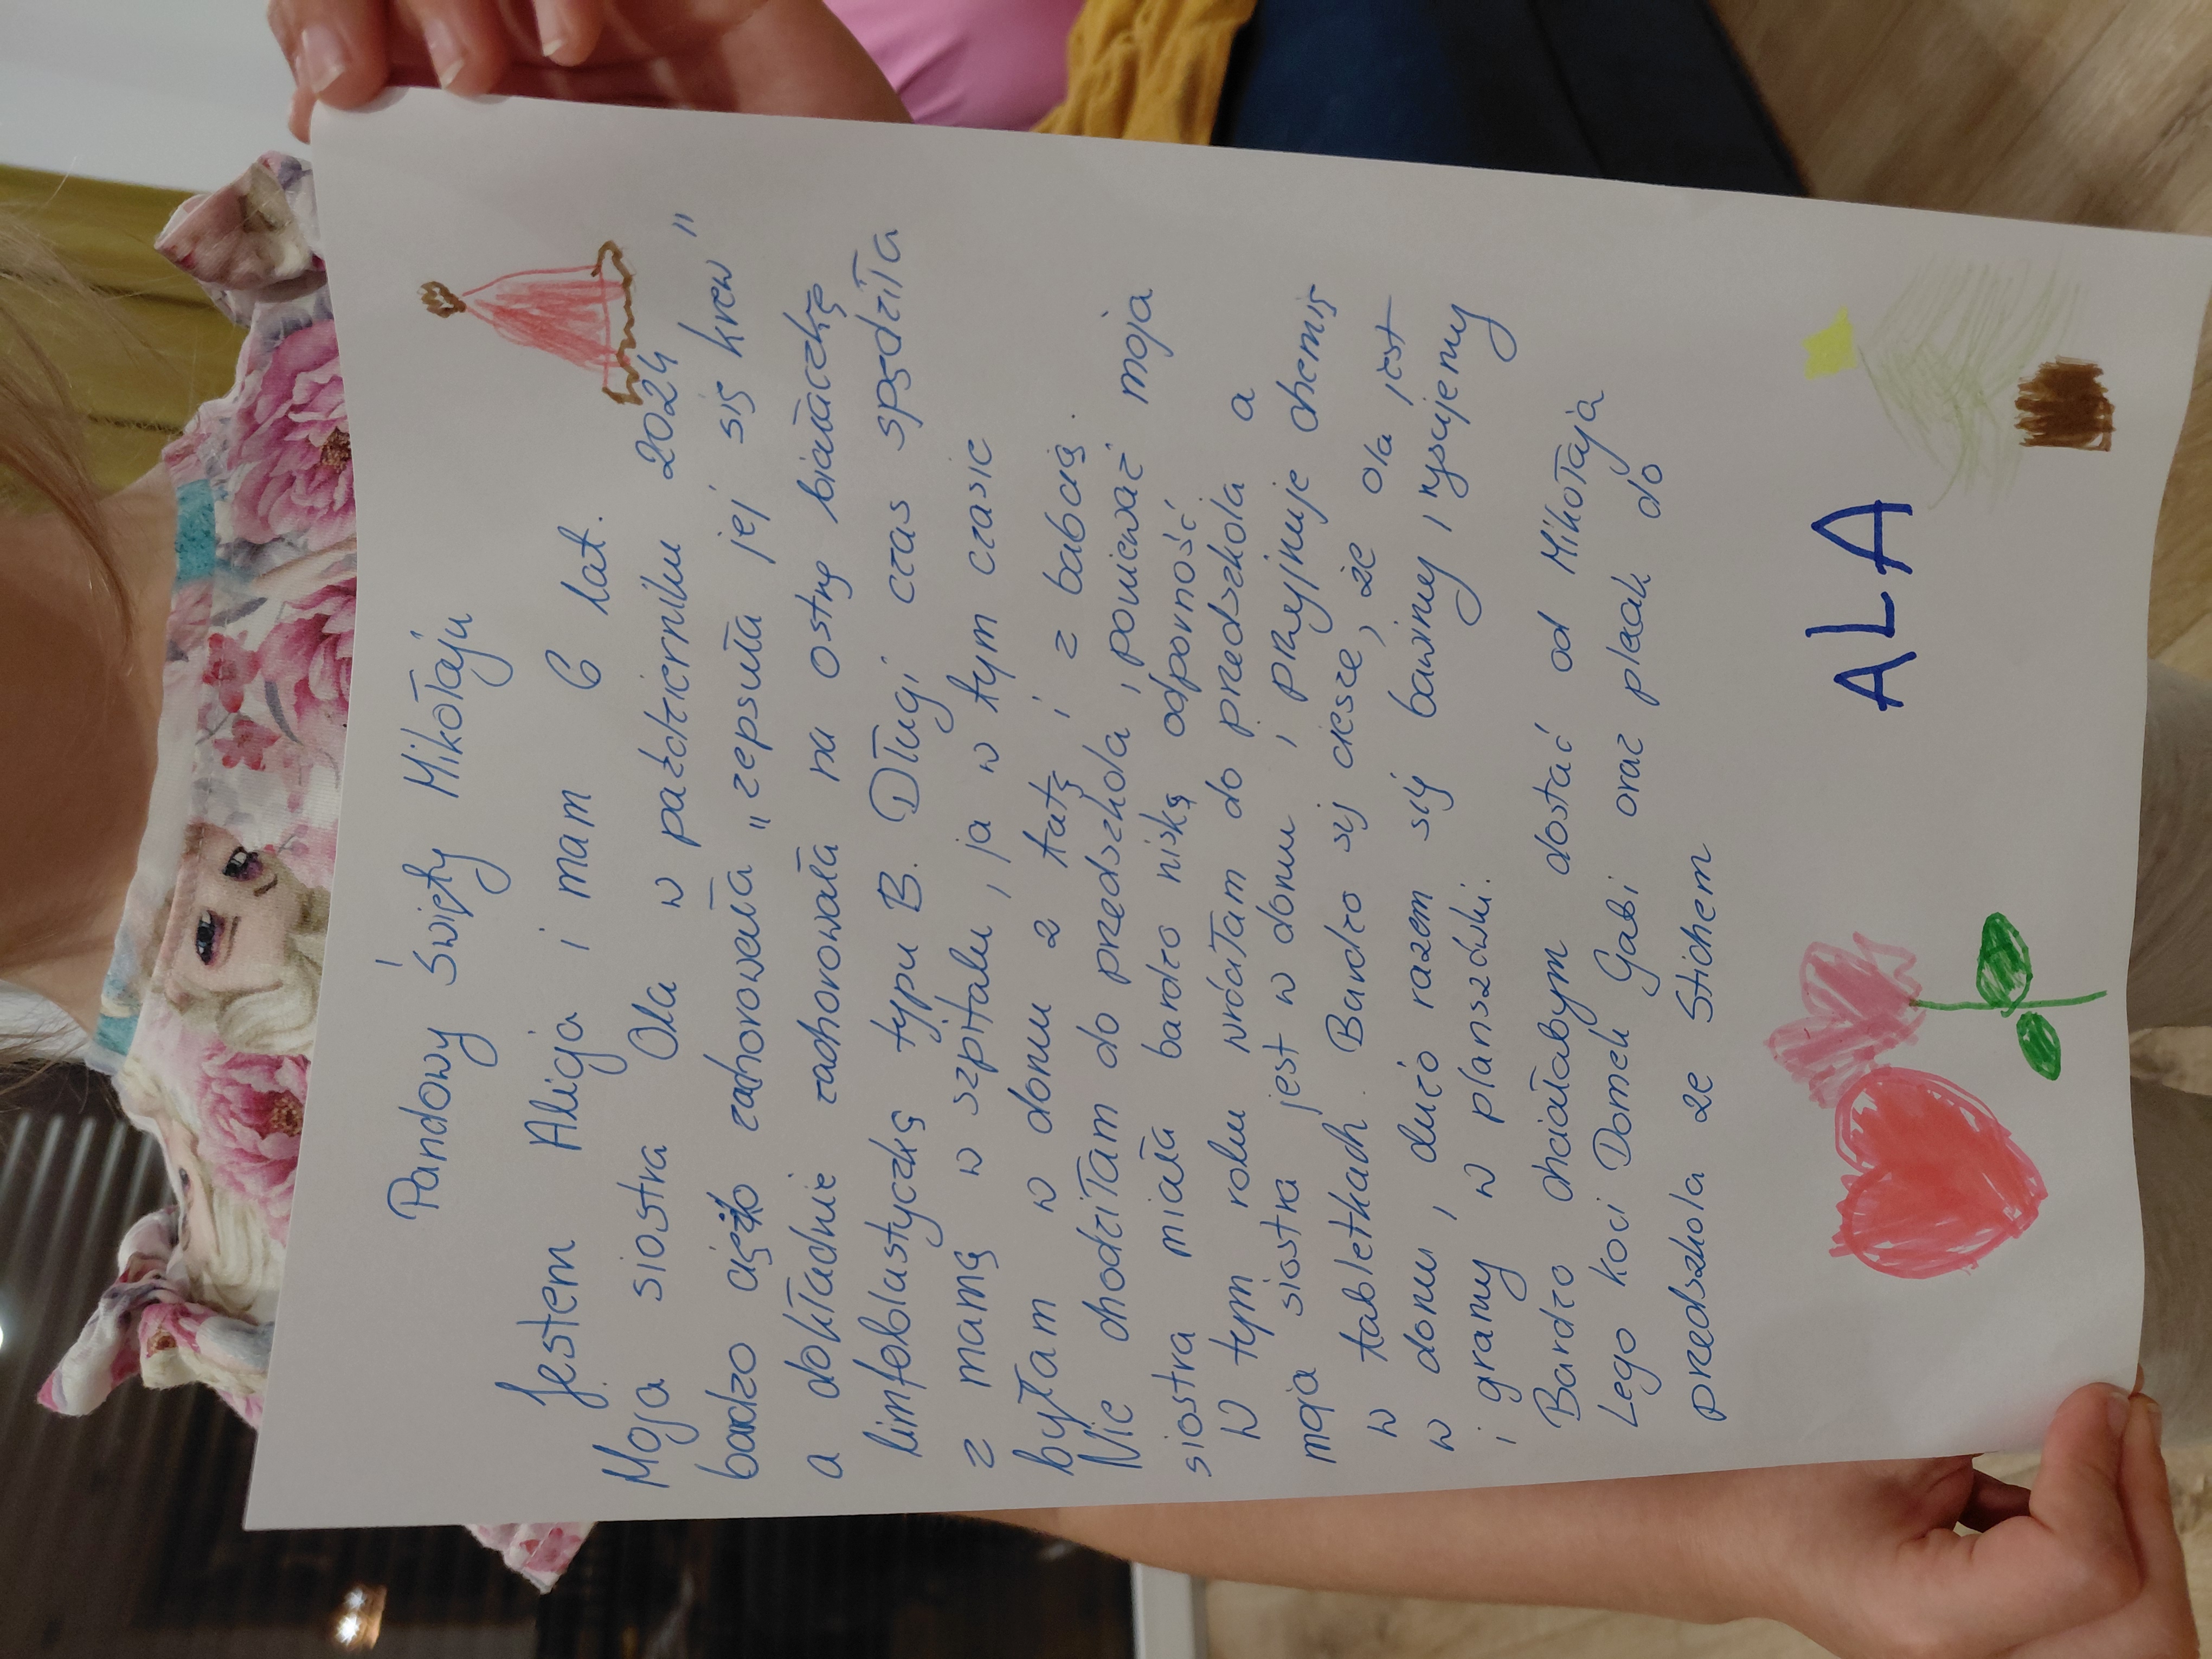 Pandowy Święty Mikołaju
Jestem Alicja i mam 6 lat.
Moja siostra Ola w październiku 2024
bardzo ciężko zachorowała "zepsuła jej się krew"
a dokładnie zachorowała na ostrą białaczkę
limfoblastyczką typu B. Długi czas spędziła
z mamą w szpitalu, ja w tym czasie
byłam w domu z tatą i z babcią.
Nie chodziłam do przedszkola, ponieważ moja
siostra miała bardzo niską odporność
W tym roku wróciłam do przedszkola a
moja siostra jest w domu i przyjmuje chemię
w tabletkach. Bardzo się cieszę, że Ola jest
w domu i dużo razem się bawimy i rysujemy
i gramy w planszówki.
Bardzo chciałabym dostać od Mikołaja
Lego koci Domek Gabi oraz plecak do
przedszkola ze Stichem
ALA